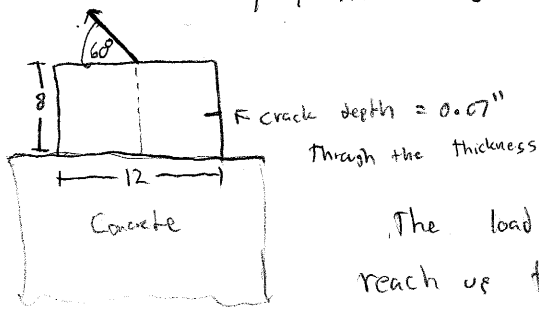 60°
8
crack depth = 0.07"
Through the thickness
12
Concrete
The load
reach up